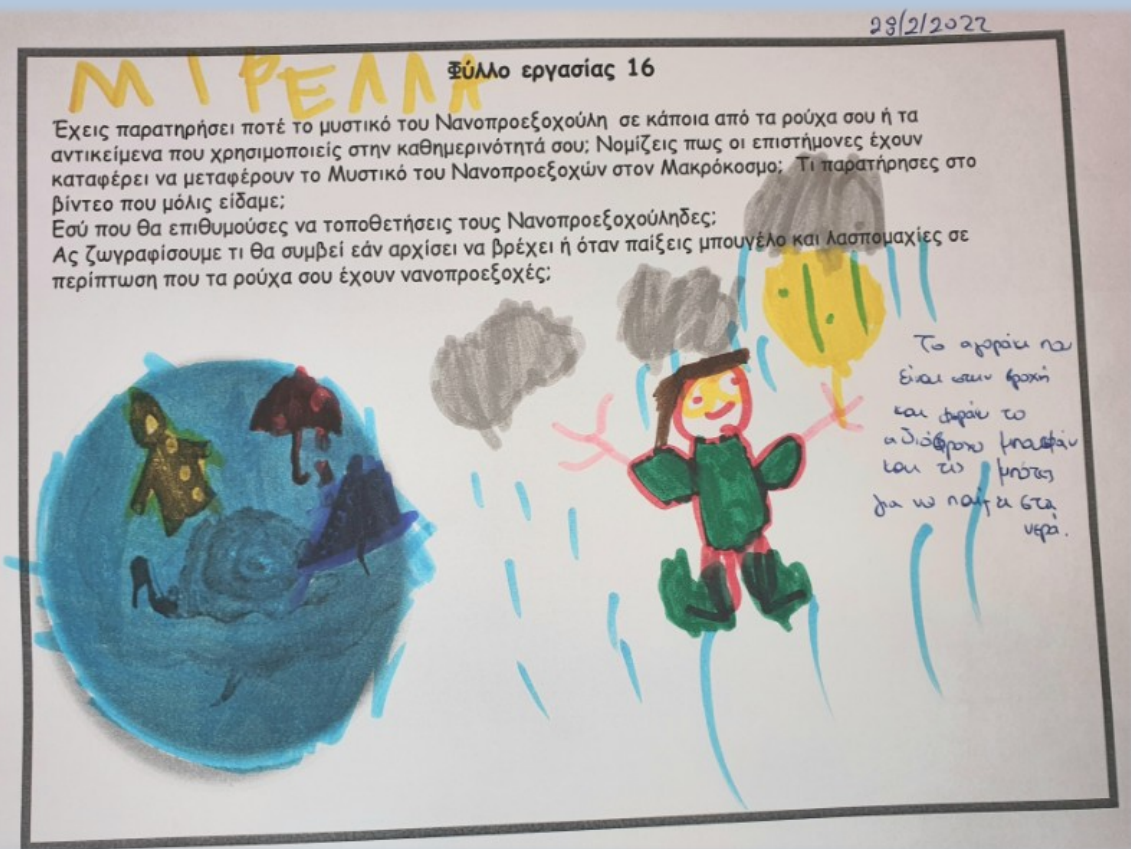 28/2/2022
ΜΙΡΕΛΛΑ
Φύλλο εργασίας 16
Έχεις παρατηρήσει ποτέ το μυστικό του Νανοπροεξοχούλη σε κάποια από τα ρούχα σου ή τα
αντικείμενα που χρησιμοποιείς στην καθημερινότητά σου; Νομίζεις πως οι επιστήμονες έχουν
καταφέρει να μεταφέρουν το Μυστικό του Νανοπροεξοχών στον Μακρόκοσμο; Τι παρατήρησες στο
βίντεο που μόλις είδαμε;
Εσύ που θα επιθυμούσες να τοποθετήσεις τους Νανοπροεξοχούληδες;
Ας ζωγραφίσουμε τι θα συμβεί εάν αρχίσει να βρέχει ή όταν παίξεις μπουγέλο και λασπομαχίες σε
περίπτωση που τα ρούχα σου έχουν νανοπροεξοχές;
Το αγοράκι που
είναι στην βροχή
και φοράει το
αδιάβροχο μπουφάν
και τις μπότες
για να παίξει στα
νερά.